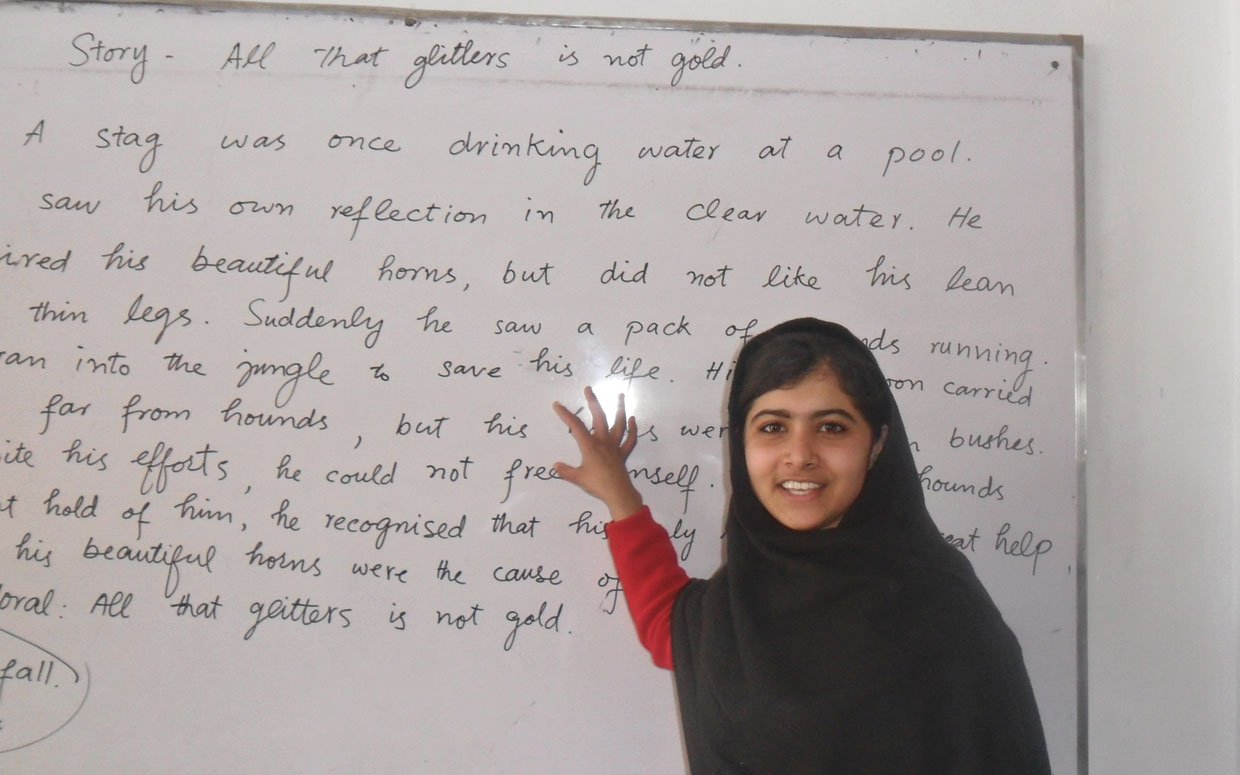 Story - All that glitters is not gold.
A stag was once drinking water at a pool.
saw his own reflection in the clear water. He
his beautiful horns, but did not like his lean
thin legs. Suddenly he saw a pack of running.
into the jungle to save his life. carried
far from hounds, but his bushes.
his efforts, he could not free hounds
hold of him, he recognised that his help
his beautiful horns were the cause of
All that glitters is not gold.
fall.